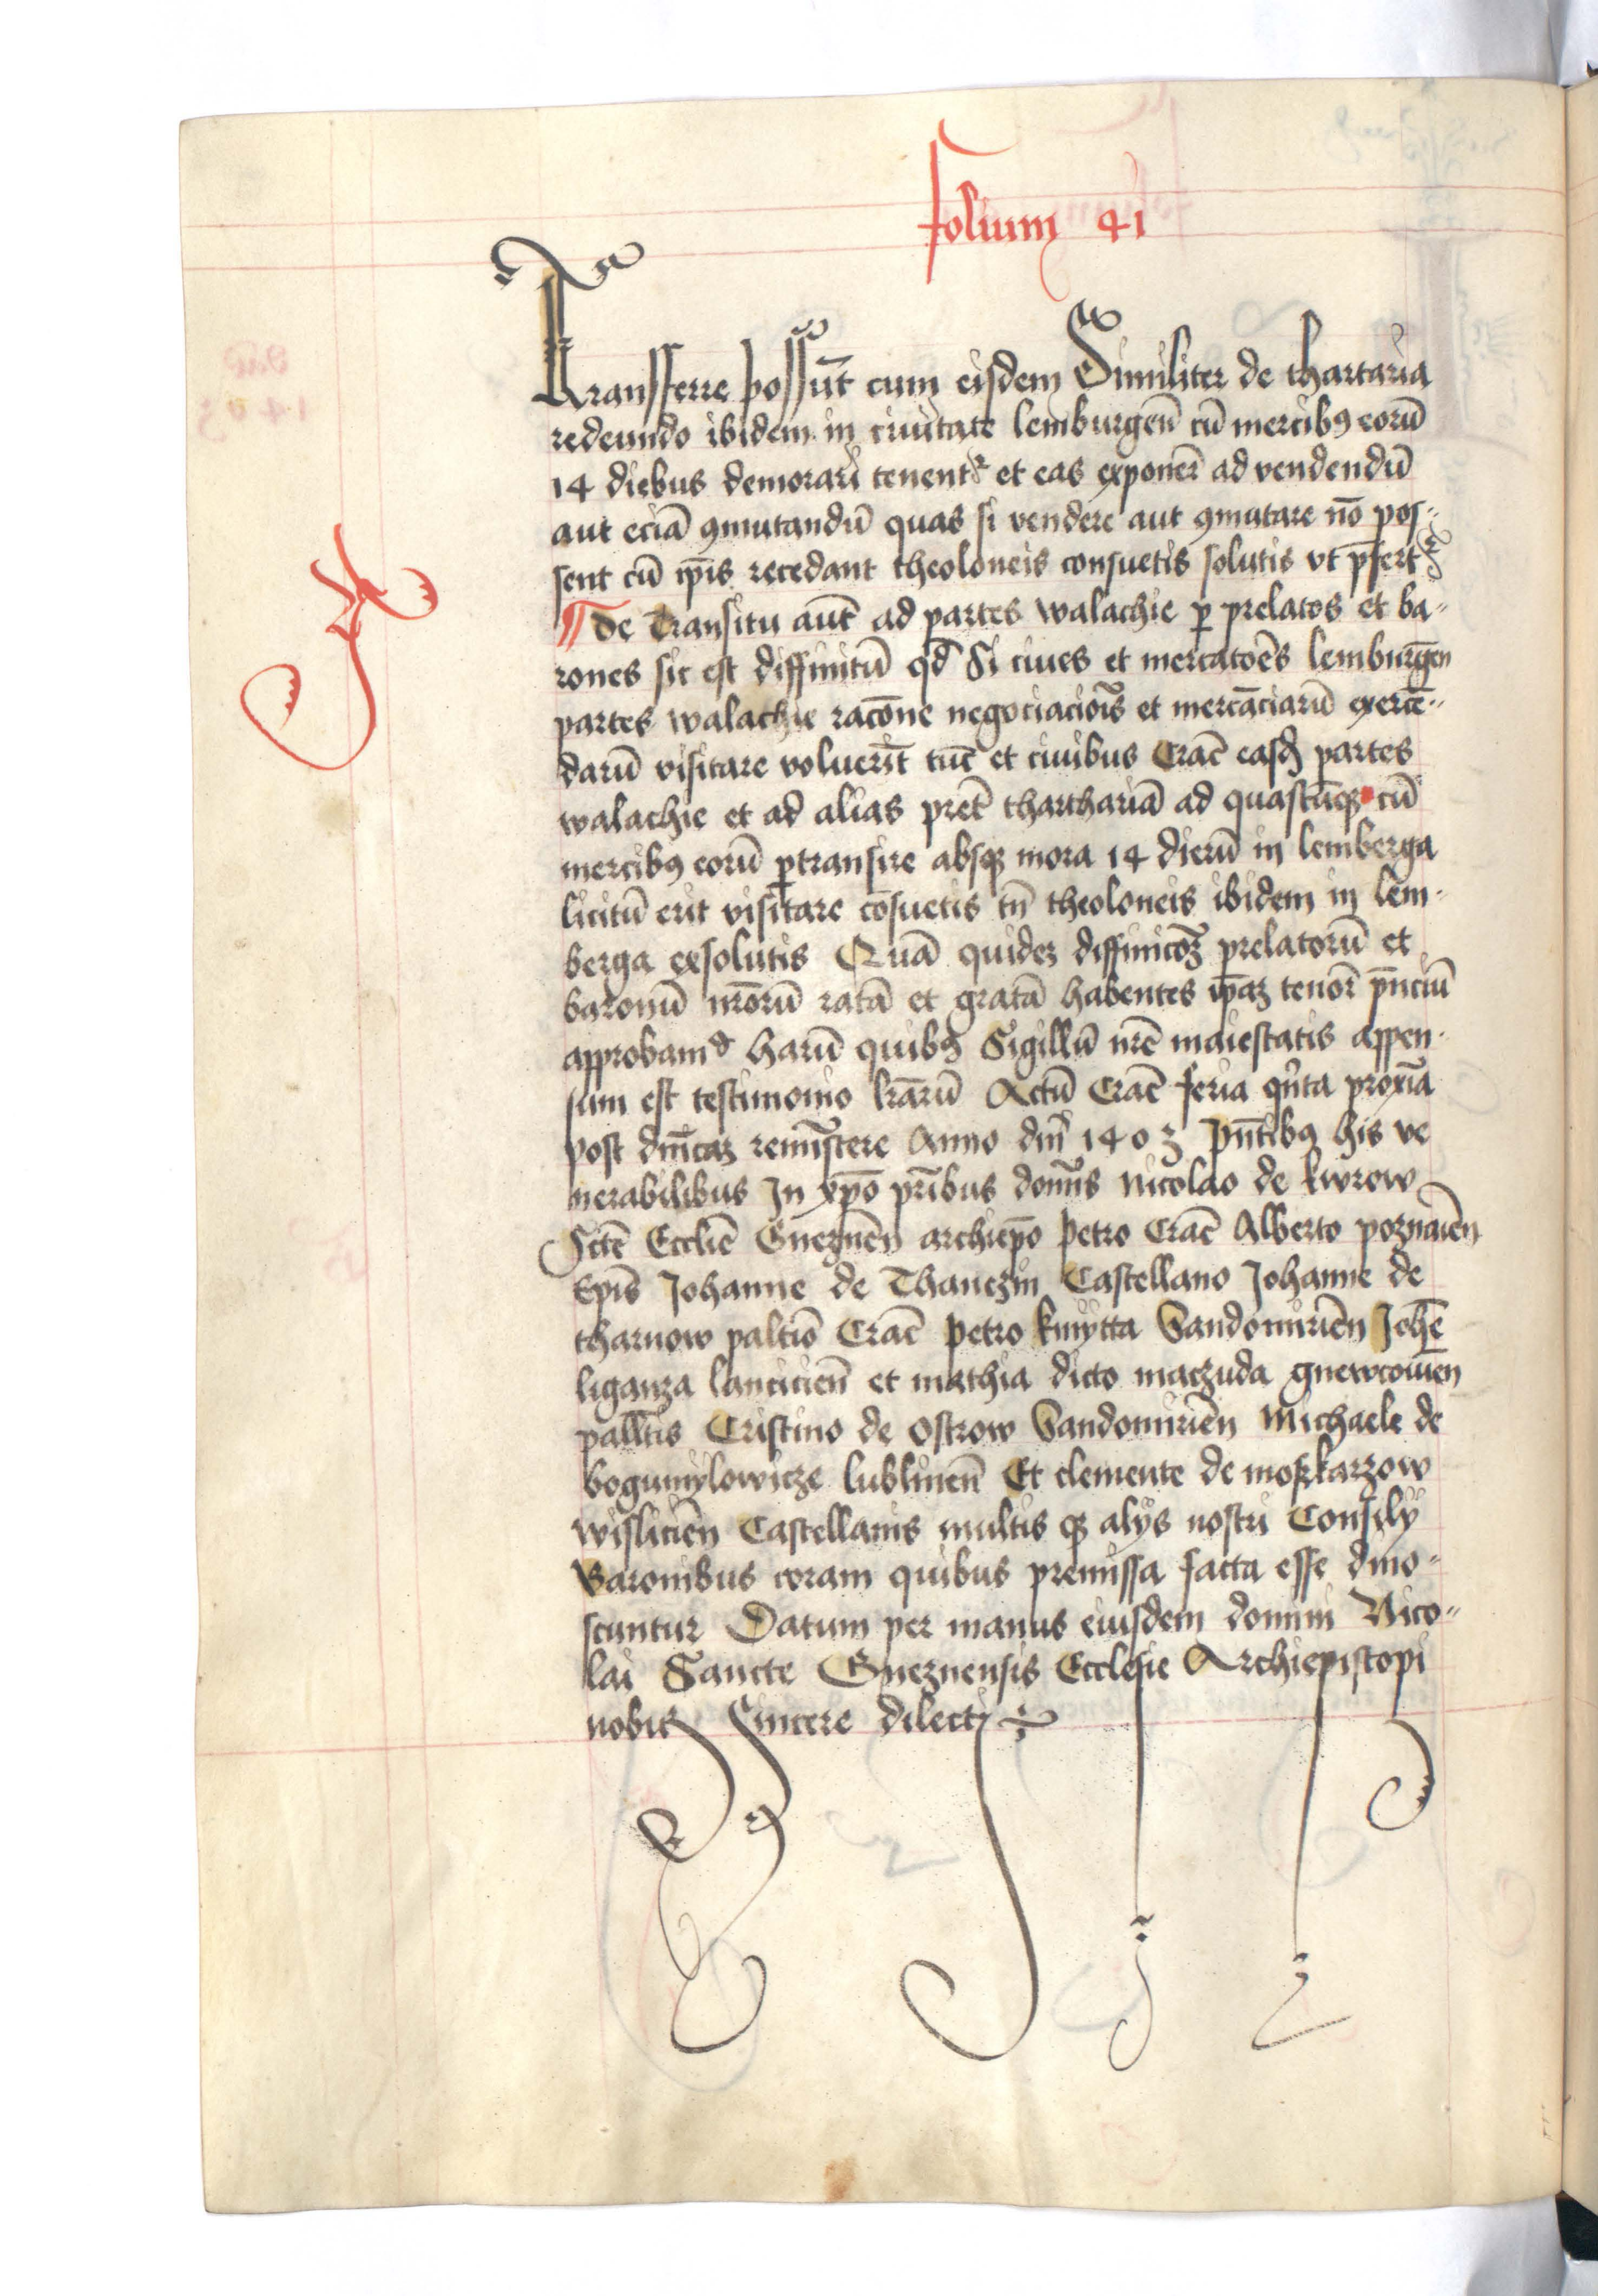 folium 41
Transferre possūt cum eisdem Similiter de thartaria
redeundo ibidem in ciuitate lemburgen̄ cū mercibꝰ eorū
14 diebus demorari tenentʳ et eas exponer̄ ad vendendū
aut eciā ꝯmutandū quas si vendere aut ꝯmutare nō pos-
sent cū ip̄is recedant theoloneis consuetis solutis vt p̄fertʳ
¶ De Transitu aut̄ ad partes walachie ꝑ prelatos et ba-
rones sic est diffinitū qd̄ Si ciues et mercatoēs lemburgen̄
partes walachie racōne negociaciōis et mercāciarū exercē-
darū visitare voluerīt tūc et ciuibus Crac̄ easdꝫ partes
walachie et ad alias pret̄ thartariā ad quascūqꝫ cū
mercibꝰ eorū ꝑtransire absqꝫ mora 14 dierū in lemberga
licitū erit visitare cōsuetis tn̄ theoloneis ibidem in lem-
berga exsolutis Quā quideꝫ diffinicōꝫ prelatorū et
baronū nr̄orū ratā et gratā habentes ip̄aꝫ tenor̄ p̄nciū
approbamꝰ harū quibꝰ Sigillū nr̄e maiestatis appen-
sum est testimonio lr̄arū Actū Crac̄ feria qn̄ta proxīa
post dn̄icaꝫ remīscere Anno dn̄i 1403 pn̄tibꝰ his ve
nerabilibus In xp̄o pr̄ibus domīs Nicolao de kurow
Sctē Ecclīe Gneznen̄ archiep̄o petro Crac̄ Alberto poznaien̄
Ep̄is Johanne de Thanczin Castellano Johanne de
tharnow paltīo Crac̄ petro kmytta Sandomirien̄ Joh̄e
liganza lancicien̄ et mathia dicto maczuda gnewcouien̄
pallt̄is Cristino de Ostrow Sandomirien̄ Michaele de
bogumylowicze lublinen̄ Et clemente de moskarzow
wislicien̄ Castellanis multis qꝫ alys nostri Consily
Baronibus coram quibus premissa facta esse dino-
scuntur Datum per manus eiusdem domini Nico-
lai Sancte Gneznensis Ecclesie Archiepiscopi
nobis Sincere dilecti